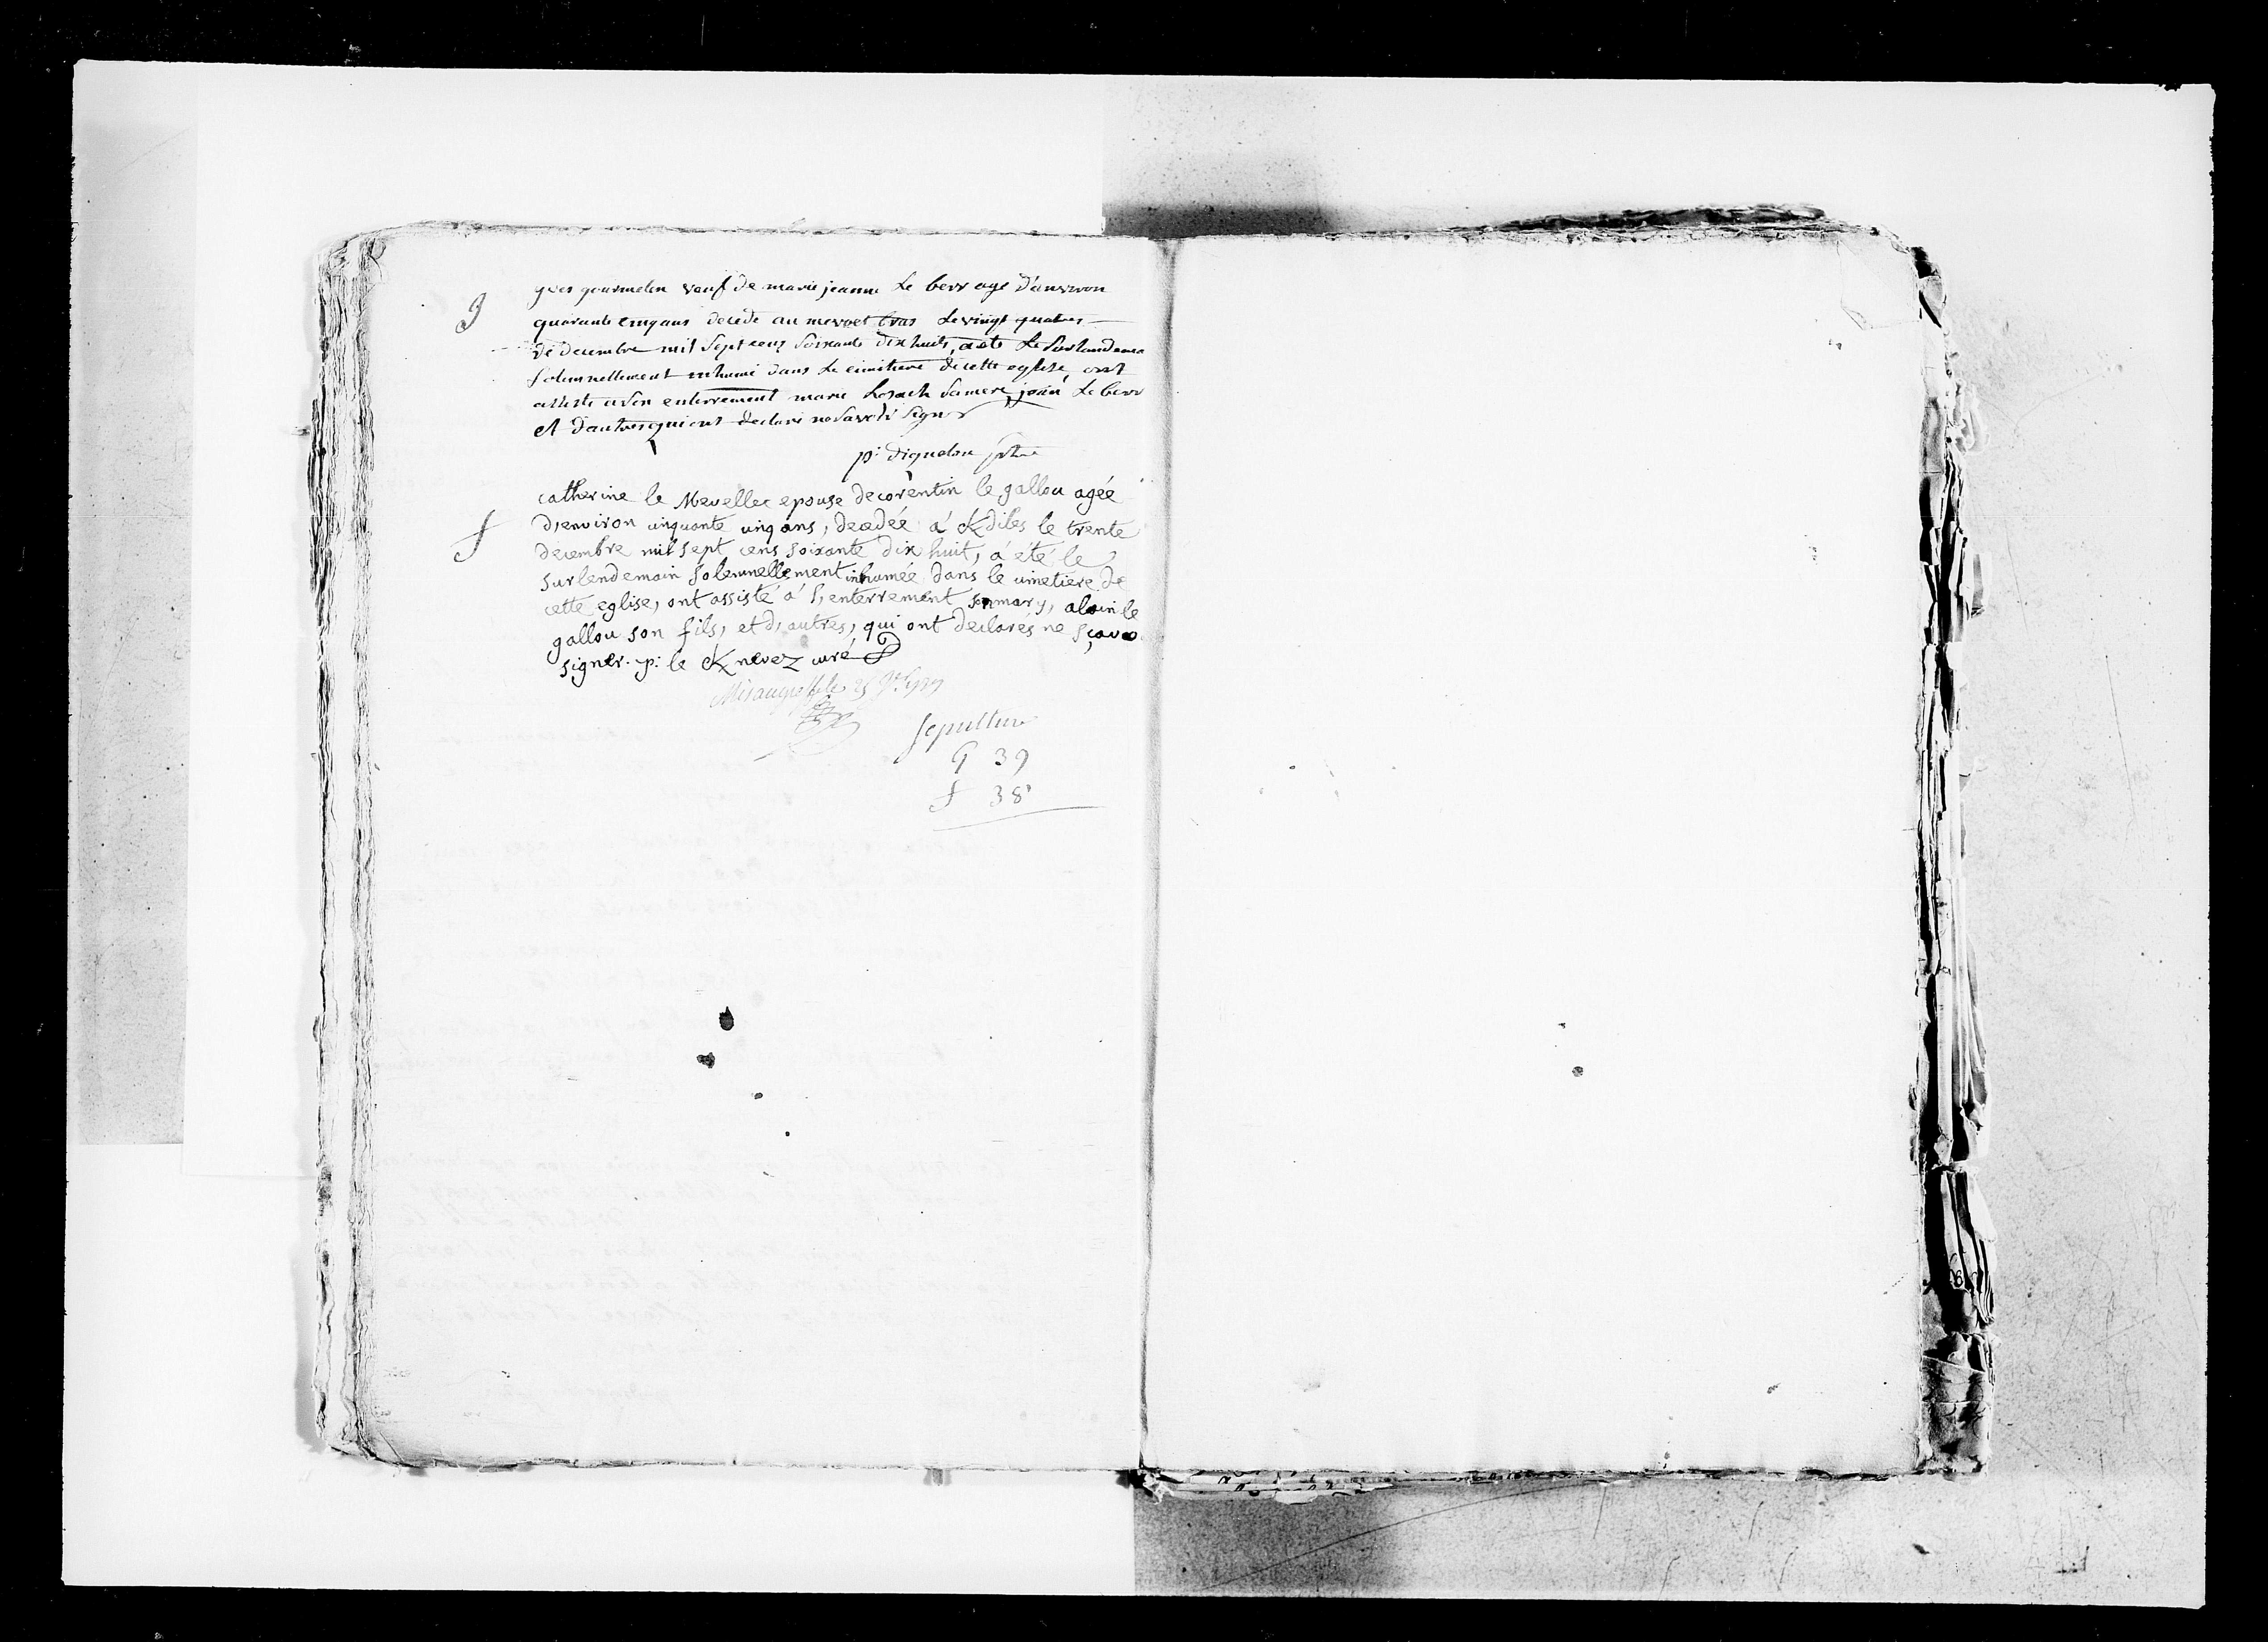 g
yves gourmelen veuf de marie jeanne Le berr agé D'anviron
quarante cinq ans decedé au mervet bras Le vingt quatres
de decembre mil Sept cens Soixante dix huits, aeté Le Surlandemain
Solemnellement inhumé dans Le cimitiere de cette eglise, ont
assisté a Son enterrement marie Losach Samere, jean Le berr
et D'autres qui ont declaré ne Savoir Signer
p: diguelou ptre
f
catherine le Mevellec epouse de corentin le gallou agée
d'environ cinquante cinq ans, decedée á Kdiles le trente
decembre mil sept cens soixante dix huit, á été le
surlendemain solemnellement inhumée dans le cimetiere de
cette eglise, ont assisté á l'enterrement son mary, alain le
gallou son fils, et d'autres, qui ont declarés ne sçavo
signer. p: le Knevez curé
Mis au greffe le 25
sepulture
G 39
f 38